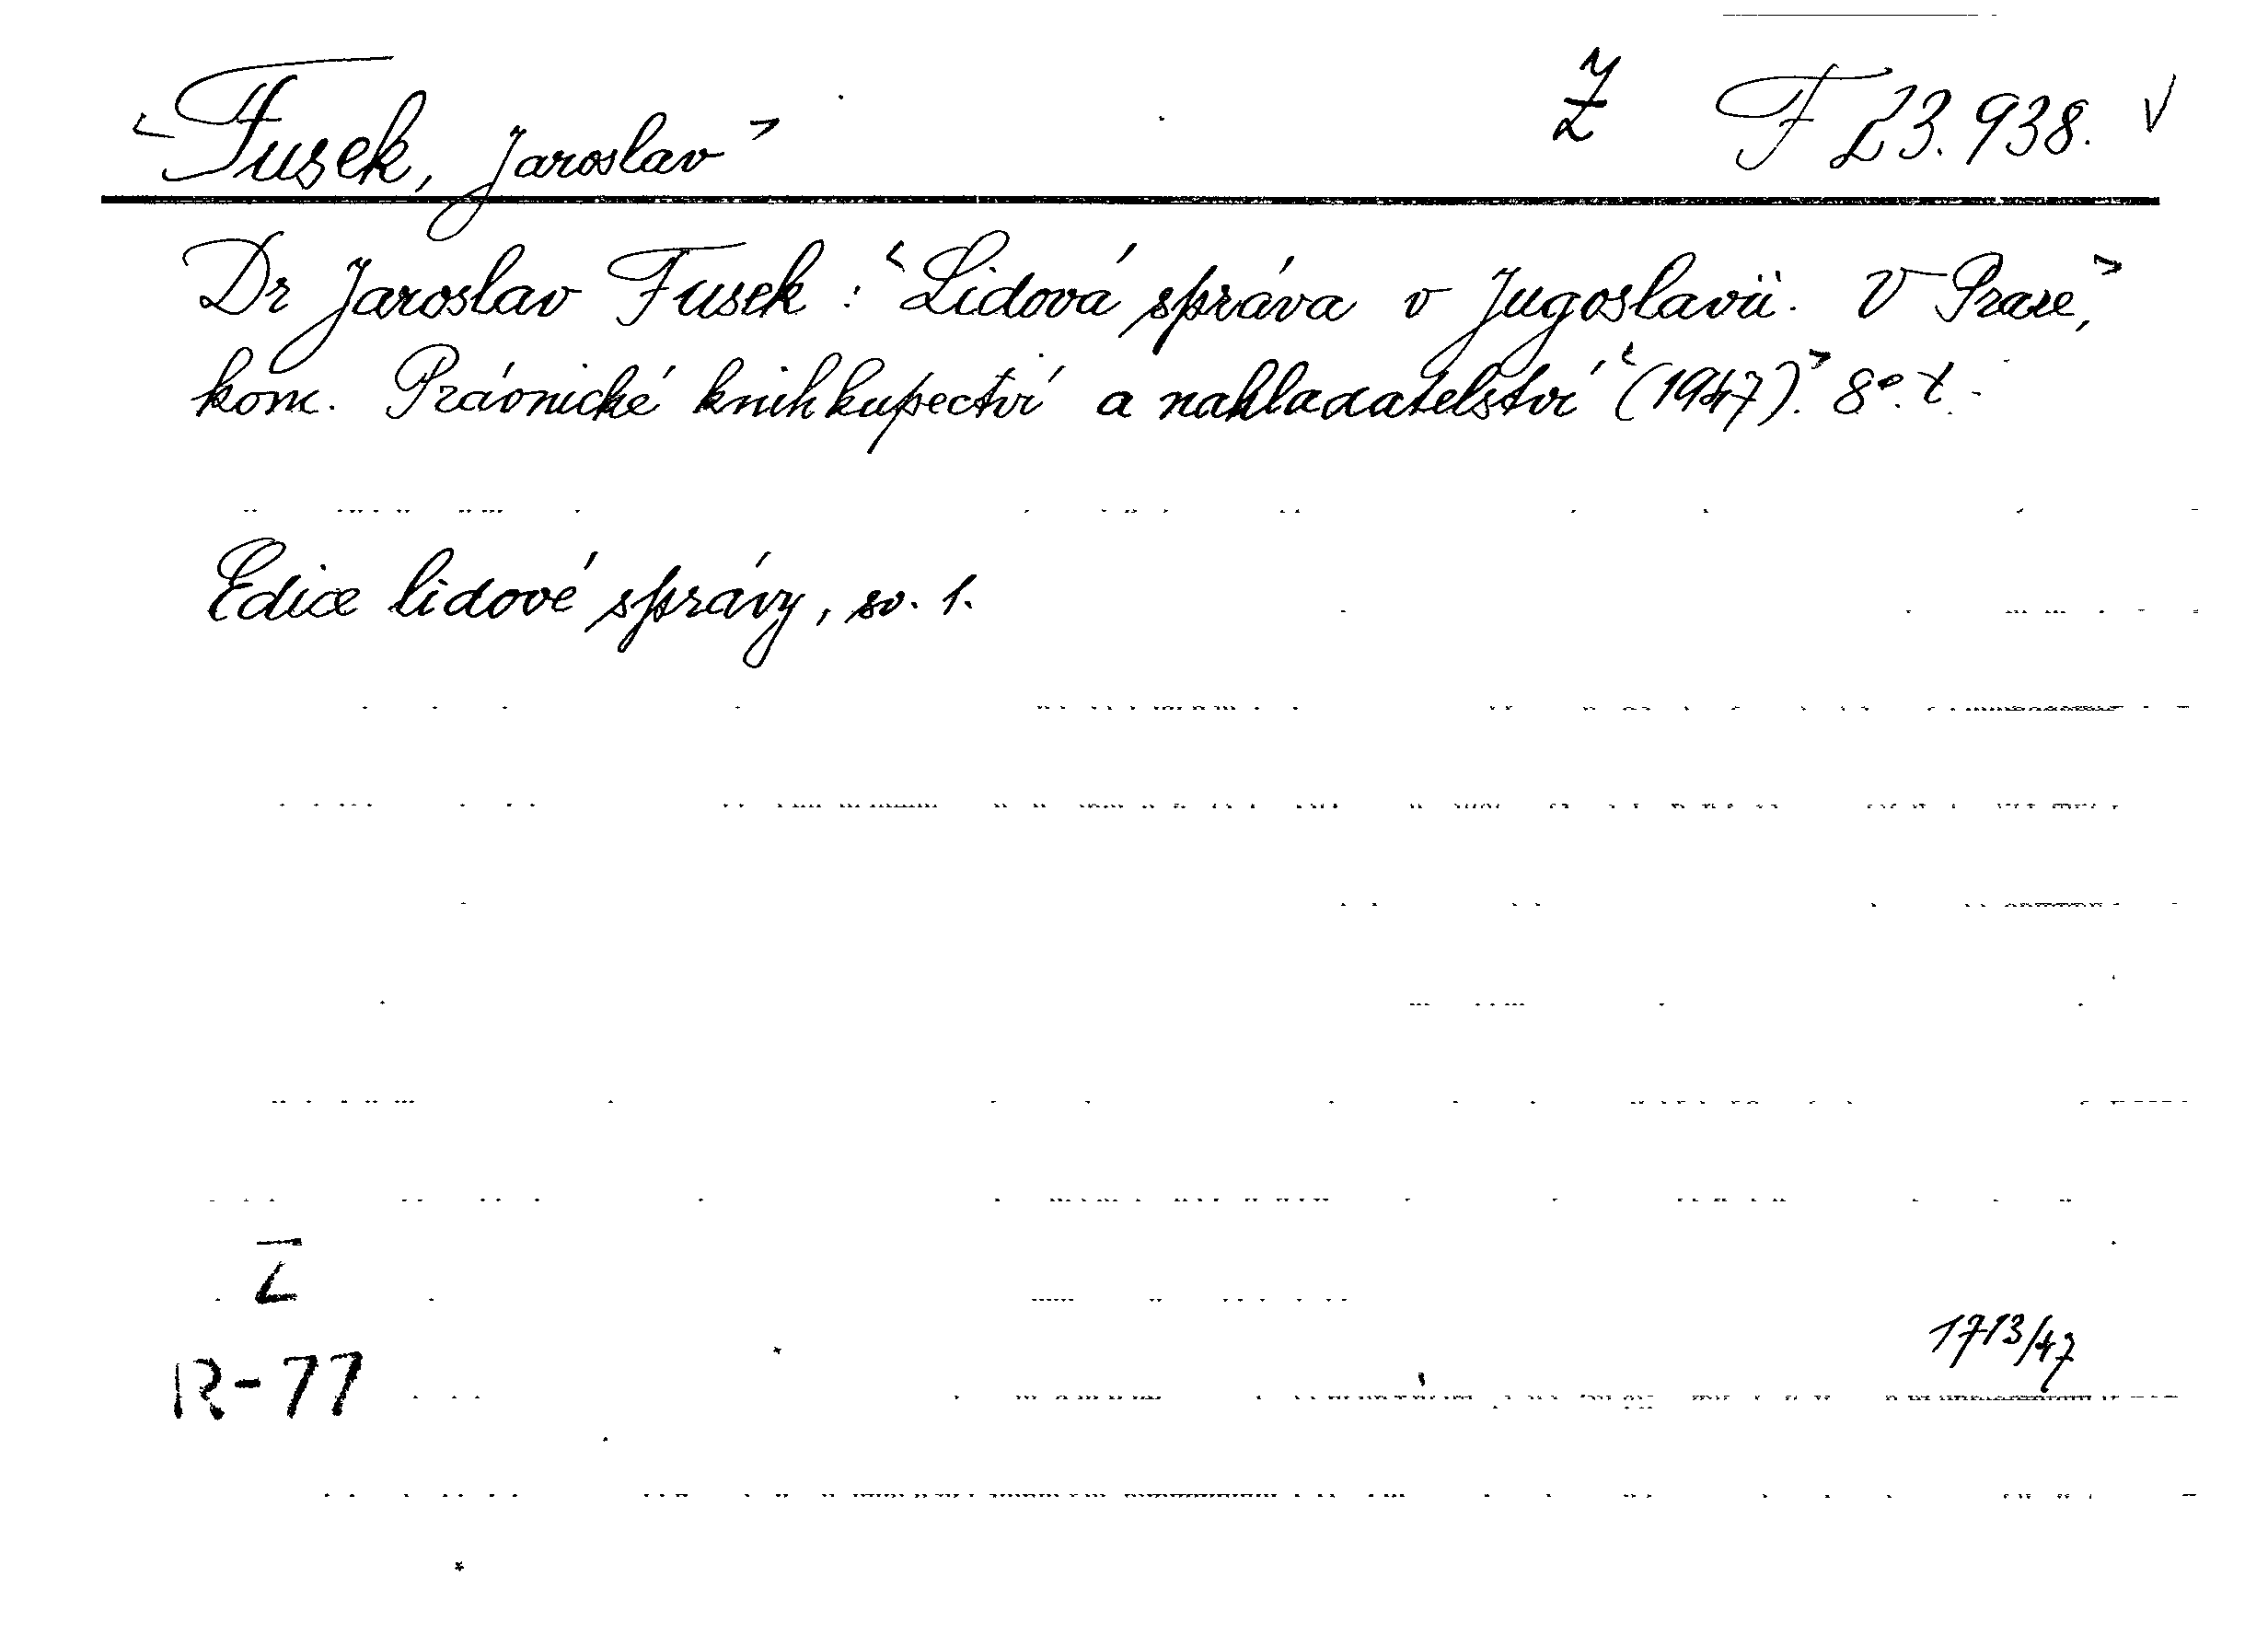 <Fusek, Jaroslav> Z F 23.938. V
Dr Jaroslav Fusek : <Lidová správa v Jugoslavii. V Praze,>
kom. Právnické knihkupectví a nakladatelství <(1947).> 8°. t.
Edice lidové správy, sv. 1.
Z
1713/47
R-77